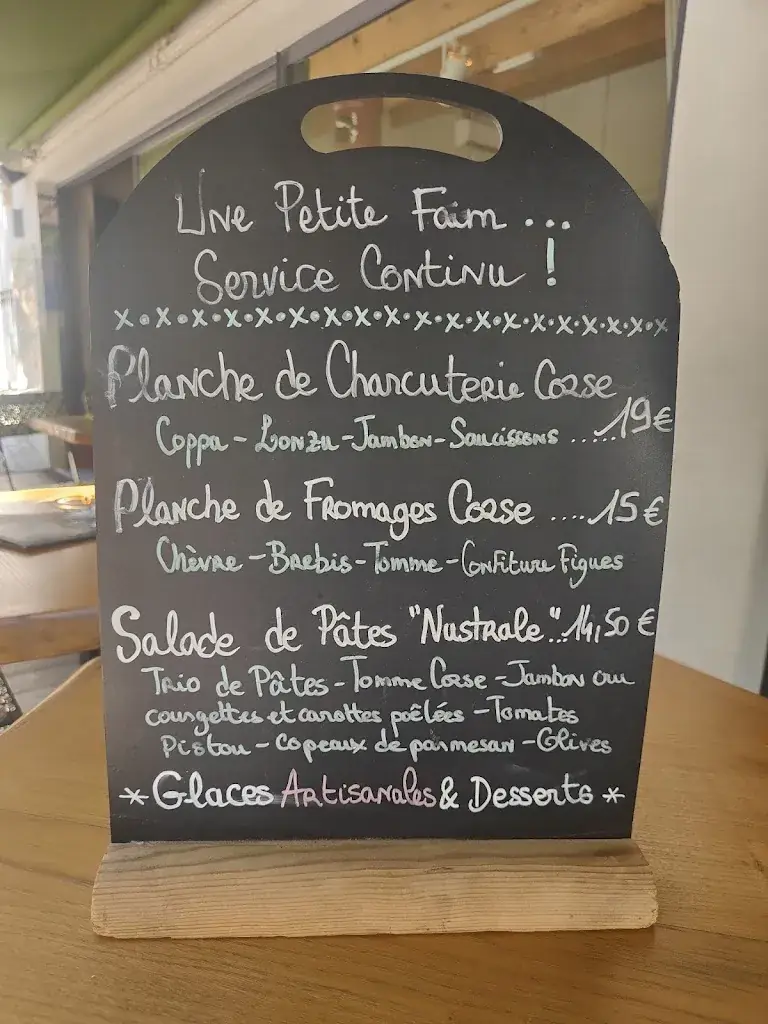 Une Petite Faim ...
Service Continu !
x.x.x.x.x.x.x.x.x.x.x.x.x.x.x.x.x.x
Planche de Charcuterie Corse
Coppa - Lonzu - Jambon - Saucissons ..... 19€
Planche de Fromages Corse .... 15€
Chèvre - Brebis - Tomme - Confiture Figues
Salade de Pâtes "Nustrale"... 14,50 €
Trio de Pâtes - Tomme Corse - Jambon cru
courgettes et carottes poêlées - Tomates
Pistou - copeaux de parmesan - Olives
* Glaces Artisanales & Desserts *